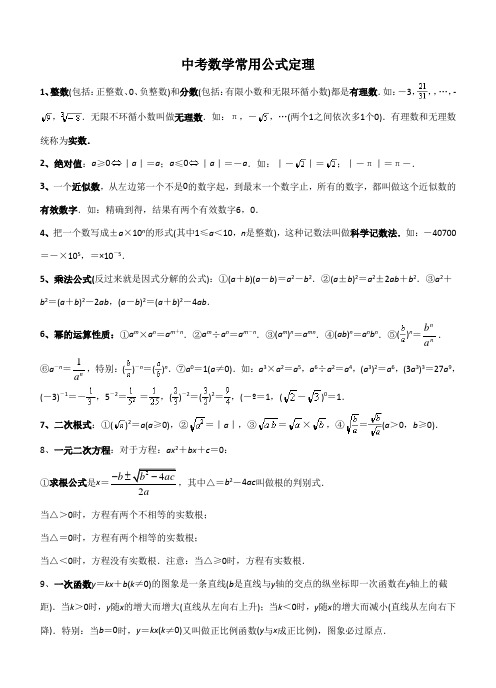 中考数学常用公式定理
1、整数(包括：正整数、0、负整数)和分数(包括：有限小数和无限环循小数)都是有理数．如：－3，21/31，，…，-
√9，∛－8．无限不环循小数叫做无理数．如：π，－√5，…(两个1之间依次多1个0)．有理数和无理数
统称为实数．
2、绝对值：a≥0⇔丨a丨＝a；a≤0⇔丨a丨＝－a．如：丨－√2丨＝√2；丨－π丨＝π－．
3、一个近似数，从左边第一个不是0的数字起，到最末一个数字止，所有的数字，都叫做这个近似数的
有效数字．如：精确到得，结果有两个有效数字6，0．
4、把一个数写成±a×10ⁿ的形式(其中1≤a＜10，n是整数)，这种记数法叫做科学记数法．如：－40700
＝－×10⁵，＝×10⁻⁵．
5、乘法公式(反过来就是因式分解的公式)：①(a＋b)(a－b)＝a²－b²．②(a±b)²＝a²±2ab＋b²．③a²＋
b²＝(a＋b)²－2ab，(a－b)²＝(a＋b)²－4ab．
6、幂的运算性质：①aᵐ×aⁿ＝aᵐ⁺ⁿ．②aᵐ÷aⁿ＝aᵐ⁻ⁿ．③(aᵐ)ⁿ＝aᵐⁿ．④(ab)ⁿ＝aⁿbⁿ．⑤(b/a)ⁿ＝bⁿ/aⁿ．
⑥a⁻ⁿ＝1/aⁿ，特别：(b/a)⁻ⁿ＝(a/b)ⁿ．⑦a⁰＝1(a≠0)．如：a³×a²＝a⁵，a⁶÷a²＝a⁴，(a³)²＝a⁶，(3a³)³＝27a⁹，
(－3)⁻¹＝－1/3，5⁻²＝1/5²＝1/25，(2/3)⁻²＝(3/2)²＝9/4，(－º＝1，(√2－√3)⁰＝1．
7、二次根式：①(√a)²＝a(a≥0)，②√a²＝丨a丨，③√ab＝√a×√b，④√(b/a)＝√b/√a(a＞0，b≥0)．
8、一元二次方程：对于方程：ax²＋bx＋c＝0：
①求根公式是x＝(−b±√(b²−4ac))/2a，其中△＝b²－4ac叫做根的判别式．
当△＞0时，方程有两个不相等的实数根；
当△＝0时，方程有两个相等的实数根；
当△＜0时，方程没有实数根．注意：当△≥0时，方程有实数根．
9、一次函数y＝kx＋b(k≠0)的图象是一条直线(b是直线与y轴的交点的纵坐标即一次函数在y轴上的截
距)．当k＞0时，y随x的增大而增大(直线从左向右上升)；当k＜0时，y随x的增大而减小(直线从左向右下
降)．特别：当b＝0时，y＝kx(k≠0)又叫做正比例函数(y与x成正比例)，图象必过原点．